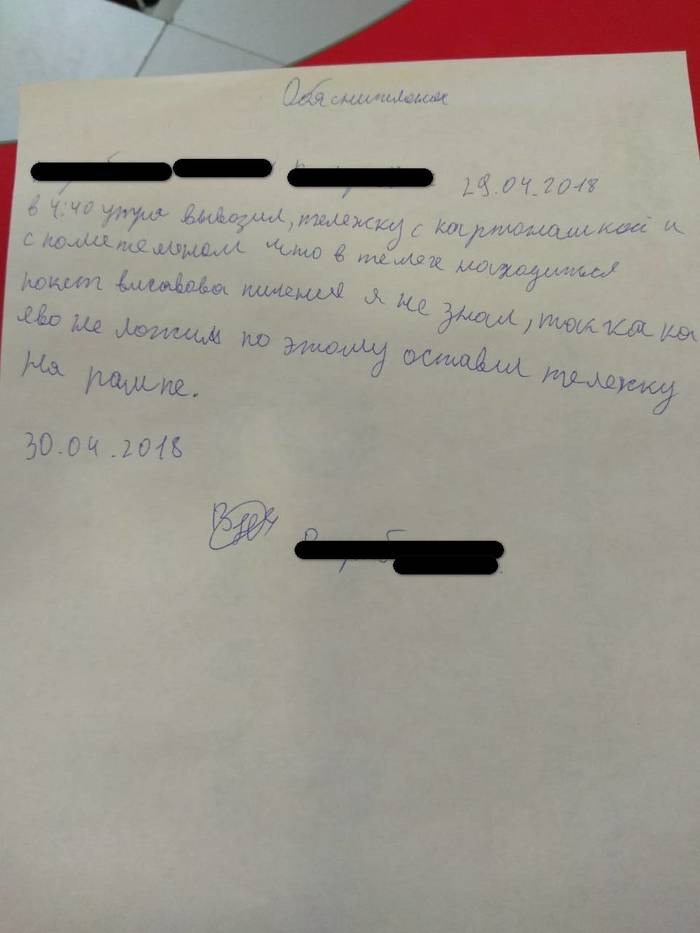 Обяснителоная
29.04.2018
в 4:40 утра вывозил, тележку с картонашкой и
с полетеленом что в телеге находиться
покет висавова пичения я не знал, так как
яво не ложил по этому оставил тележку
на рампе.
30.04.2018